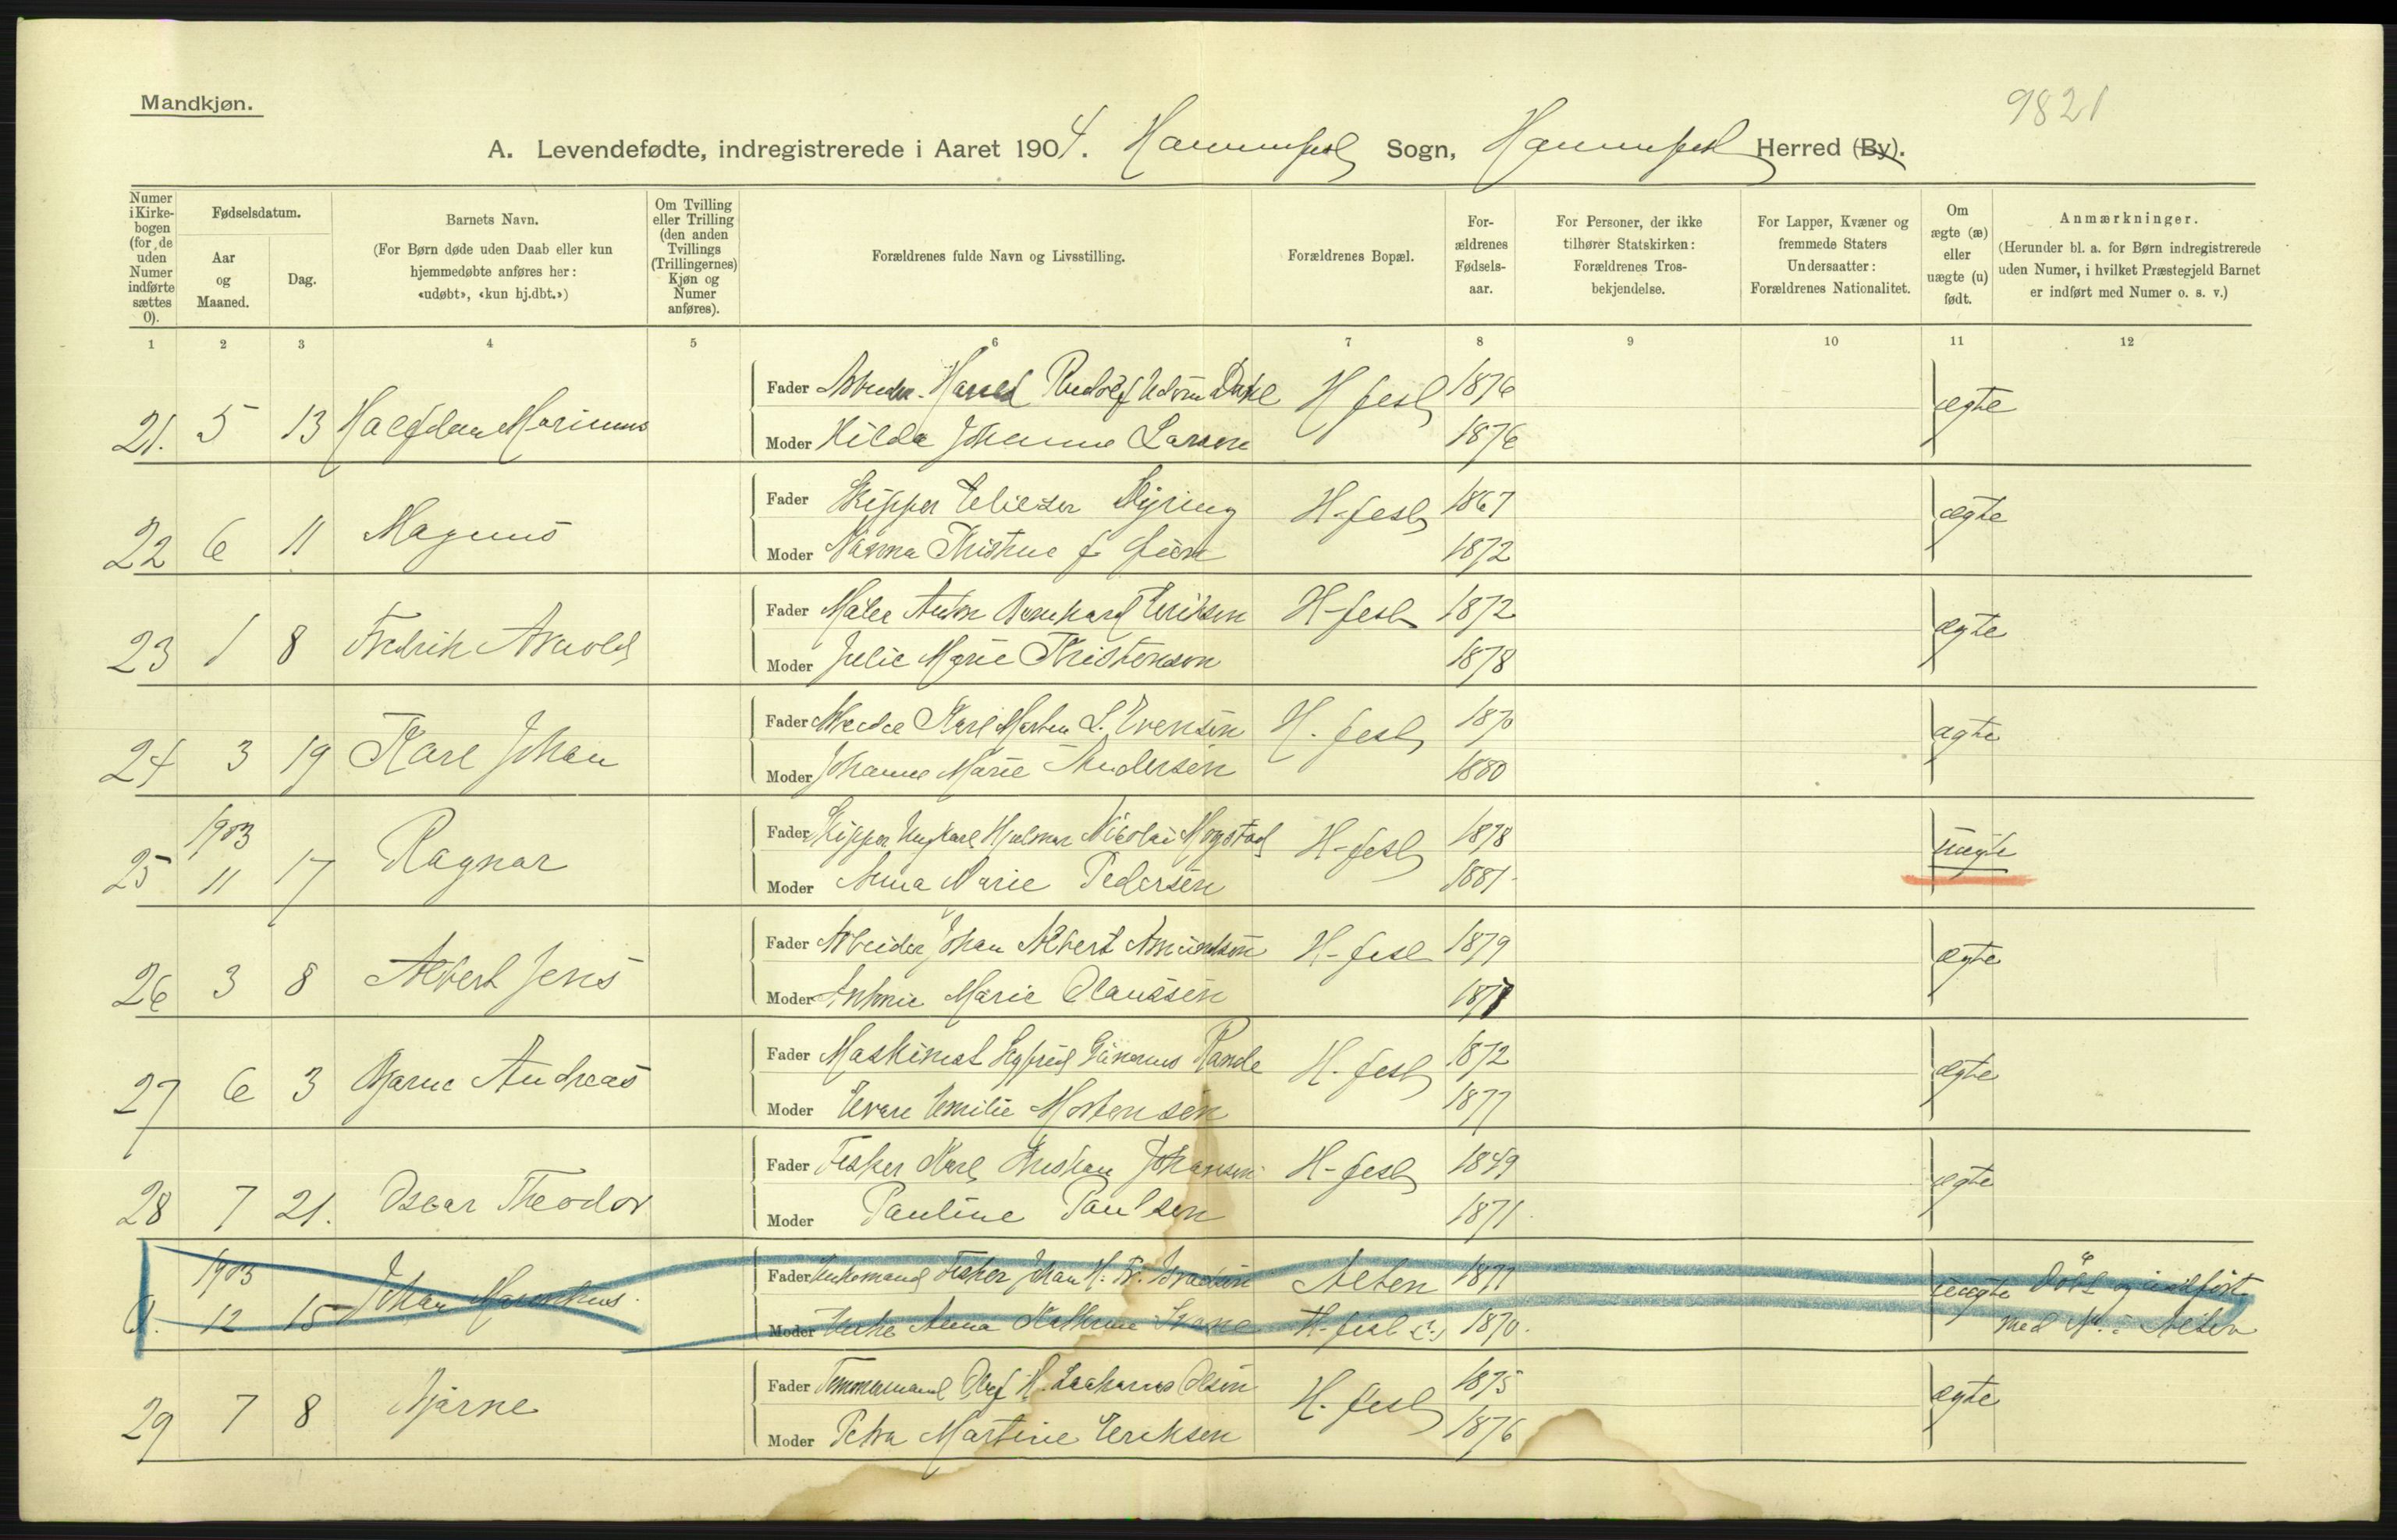 Mandkjøn.
9821
A. Levendefødte, indregistrerede i Aaret 1904. Hammerfest Sogn, Hammerfest Herred (By).
Numer i Kirkebogen (for de uden Numer indførte sættes 0).
Fødselsdatum.
Aar og Maaned.
Dag.
Barnets Navn.
(For Børn døde uden Daab eller kun hjemmedøbte anføres her: «udøbt», «kun hj.dbt.»)
Om Tvilling eller Trilling (den anden Tvillings (Trillingernes) Kjøn og Numer anføres).
Forældrenes fulde Navn og Livsstilling.
Forældrenes Bopæl.
Forældrenes Fødselsaar.
For Personer, der ikke tilhører Statskirken: Forældrenes Trosbekjendelse.
For Lapper, Kvæner og fremmede Staters Undersaatter: Forældrenes Nationalitet.
Om ægte (æ) eller uægte (u) født.
Anmærkninger.
(Herunder bl. a. for Børn indregistrerede uden Numer, i hvilket Præstegjeld Barnet er indført med Numer o. s. v.)
1 2 3 4 5 6 7 8 9 10 11 12
21. 5 13 Halfdan Marinus Fader Arbeider Harald Rudolf Edvin Dahl H-fest 1876 ægte
Moder Hilda Johanne Larsen 1876
22 6 11 Magnus Fader Skipper Elieser H-fest 1867 ægte
Moder Kristine f 1872
23 1 8 Fredrik Arnold Fader Maler Anton Bernhard Eriksen H-fest 1872 ægte
Moder Julie Marie Kristensen 1878
24 3 19 Karl Johan Fader Arbeider Karl Morten L. Evensen H-fest 1870 ægte
Moder Johanne Marie Andersen 1880
25 1903 11 17 Ragnar Fader Skipper Ungkarl Hjalmar Nikolai Mogstad H-fest 1878 uægte
Moder Anna Marie Pedersen 1881
26 3 8 Albert Jens Fader Arbeider Johan Albert Amundsen H-fest 1879 ægte
Moder Antonie Marie Olaussen
27 6 3 Bjarne Andreas Fader Maskinist Sigfrid Gunerius Rande H-fest 1872 ægte
Moder Emilie Mortensen 1877
28 7 21. Oscar Theodor Fader Fisker Karl Kristian Johansen H-fest 1849 ægte
Moder Pauline Paulsen 1871
0. 1903 12 15 Johan Fader Enkemand Fisker Johan H. Fr. Alten 1877 uægte Døbt og indført
Moder Enke Anna Kathrine H-fest (?) 1870. med No. i Alten
29 7 8 Bjarne Fader Tømmermand Olaf H. Zacharias Olsen H-fest 1875 ægte
Moder Petra Martine Eriksen 1876